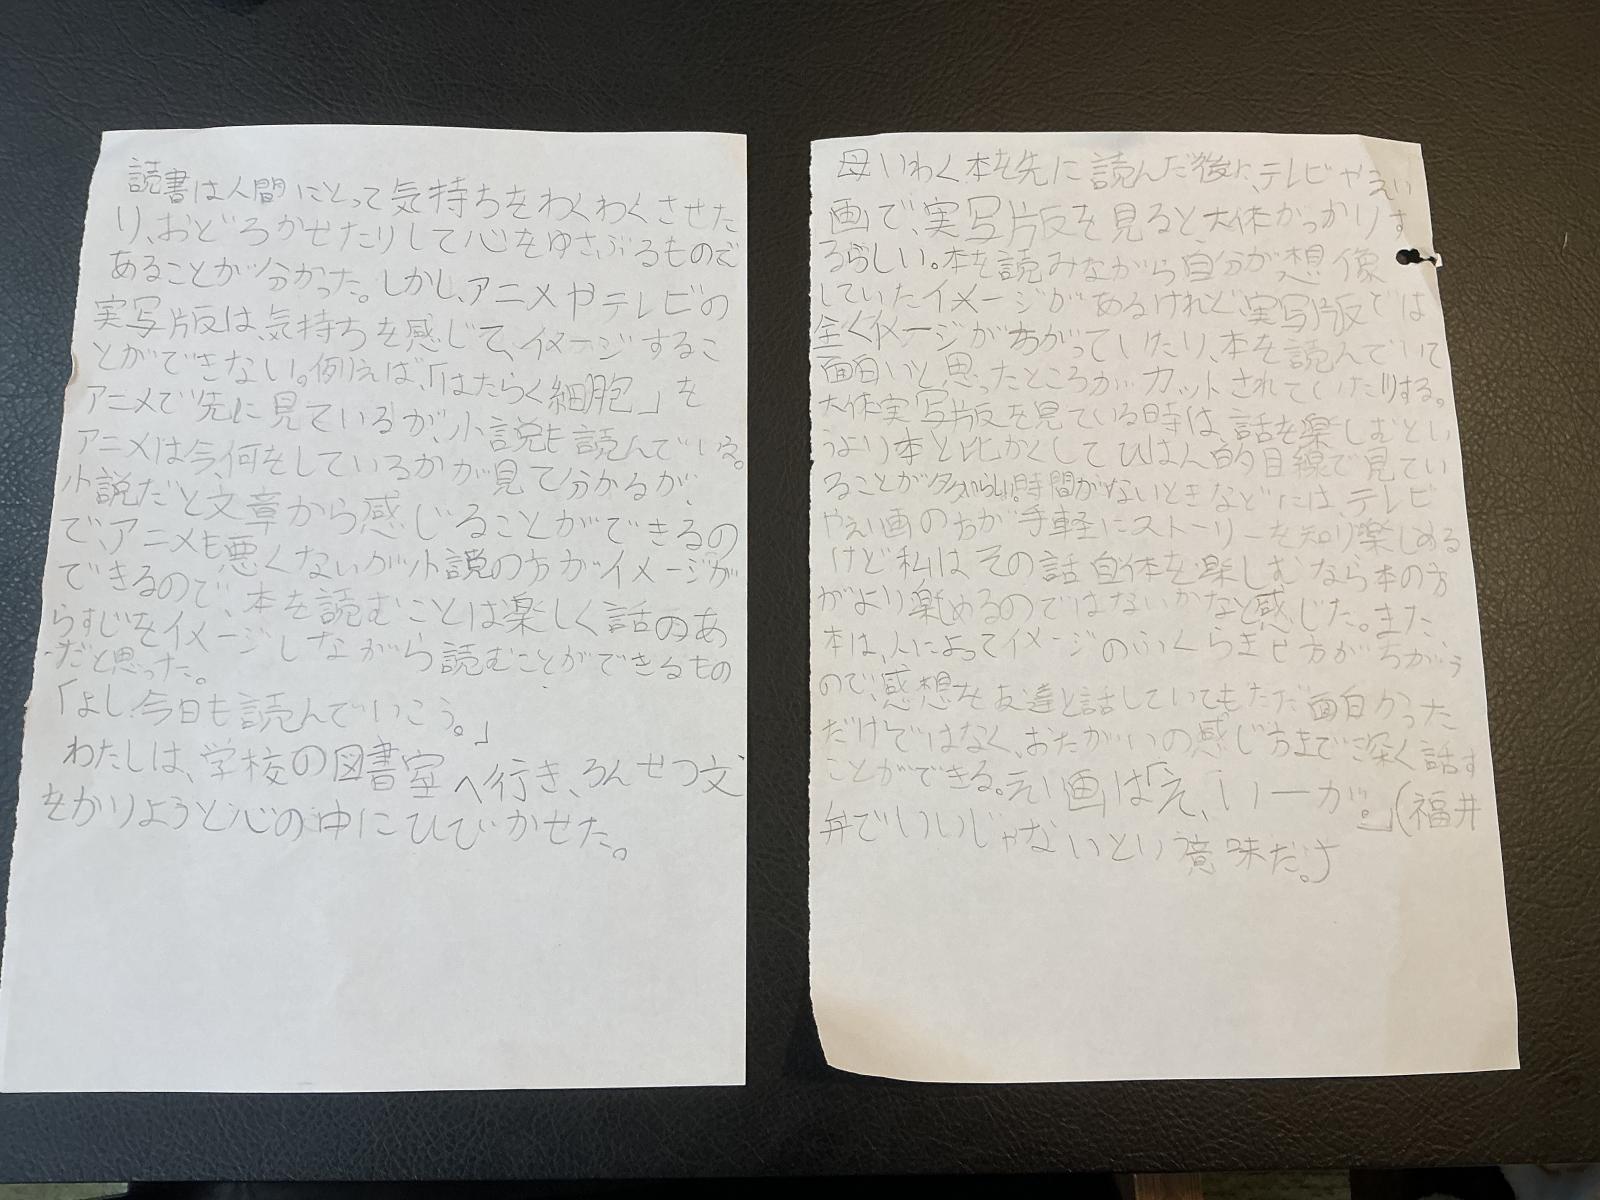 読書は人間にとって気持ちをわくわくさせた
り、おどろかせたりして心をゆさぶるもので
あることが分かった。しかし、アニメやテレビの
実写片版は、気持ちを感じて、イメージするこ
とができない。例えば、「はたらく細胞」を
アニメで先に見ているが、小説も読んでいる。
アニメは今、何をしているかが見て分かるが、
小説だと文章から感じることができるの
で、アニメも悪くないが小説の方がイメージが
できるので、本を読むことは楽しく話のあ
らすじをイメージしながら読むことができるもの
だと思った。
「よし、今日も読んでいこう。」
わたしは、学校の図書室へ行き、ろんせつ文
をかりようと心の中にひびかせた。
母いわく本を先に読んだ後に、テレビやえい
画で、実写片版を見ると大体がっかりす
るらしい。本を読みながら自分が想像
していたイメージがあるけれど、実写片版では
全くイメージがちがっていたり、本を読んでいて
面白いと思ったところがカットされていたりする。
大体実写片版を見ている時は話を楽しむとい
うより本と比かくしてひはん的目線で見てい
ることが多いらしい。時間がないときなどには、テレビ
やえい画の方が手軽にストーリーを知り楽しめる
けど私はその話自体を楽しむなら本の方
がより楽めるのではないかなと感じた。また、
本は、人によってイメージのふくらませ方がちがう
ので、感想を友達と話していてもただ面白かった
だけではなく、おたがいの感じ方まで深く話す
ことができる。えい画は「え、いーが。」(福井
弁でいいじゃないという意味だ。)